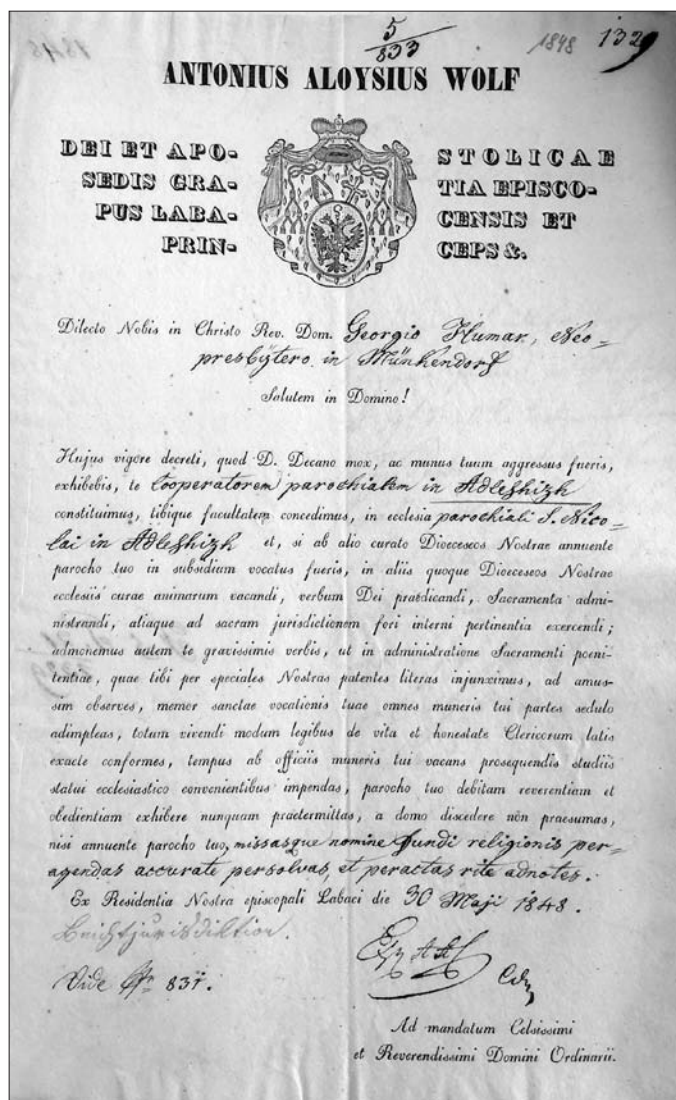 5
833
1848 132
ANTONIUS ALOYSIUS WOLF
DEI ET APO- STOLICAE
SEDIS GRA- TIA EPISCO-
PUS LABA- CENSIS ET
PRIN- CEPS &.
Dilecto Nobis in Christo Rev. Dom. Georgio Humar, Neo-
presbÿtero in Münkendorf
Salutem in Domino!
Hujus vigore decreti, quod D. Decano mox, ac munus tuum aggressus fueris,
exhibebis, te Cooperatorem parochialem in Adleshizh
constituimus, tibique facultatem concedimus, in ecclesia parochiali S. Nico-
lai in Adleshizh et, si ab alio curato Dioeceseos Nostrae annuente
parocho tuo in subsidium vocatus fueris, in aliis quoque Dioeceseos Nostrae
ecclesiis curae animarum vacandi, verbum Dei praedicandi, Sacramenta admi-
nistrandi, aliaque ad sacram jurisdictionem fori interni pertinentia exercendi;
admonemus autem te gravissimis verbis, ut in administratione Sacramenti poeni-
tentiae, quae tibi per speciales Nostras patentes literas injunximus, ad amus-
sim observes, memor sanctae vocationis tuae omnes muneris tui partes sedulo
adimpleas, totum vivendi modum legibus de vita et honestate Clericorum latis
exacte conformes, tempus ab officiis muneris tui vacans prosequendis studiis
statui ecclesiastico convenientibus impendas, parocho tuo debitam reverentiam et
obedientiam exhibere nunquam praetermittas, a domo discedere non praesumas,
nisi annuente parocho tuo, missasque nomine fundi religionis per-
agendas accurate persolvas, et peractas rite adnotes.
Ex Residentia Nostra episcopali Labaci die 30 Maji 1848.
Beichtjurisdiktion.
Vide Nr 831.
Ad mandatum Celsissimi
et Reverendissimi Domini Ordinarii.